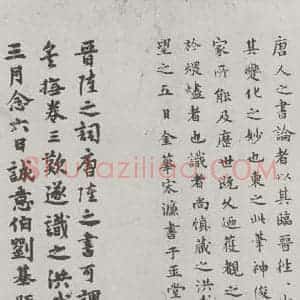 唐人之書論者以其臨晉
其變化之妙也柬之此筆神俊
家所能及歷世既久迺獲觀之
於煨燼者也識者尚慎藏之洪
望之五日金華宋濂書于玉堂
晉陸之詞唐陸之書可謂
撫卷三歎遂識之洪武
三月念六日誠意伯劉基
Shufaziliao.com